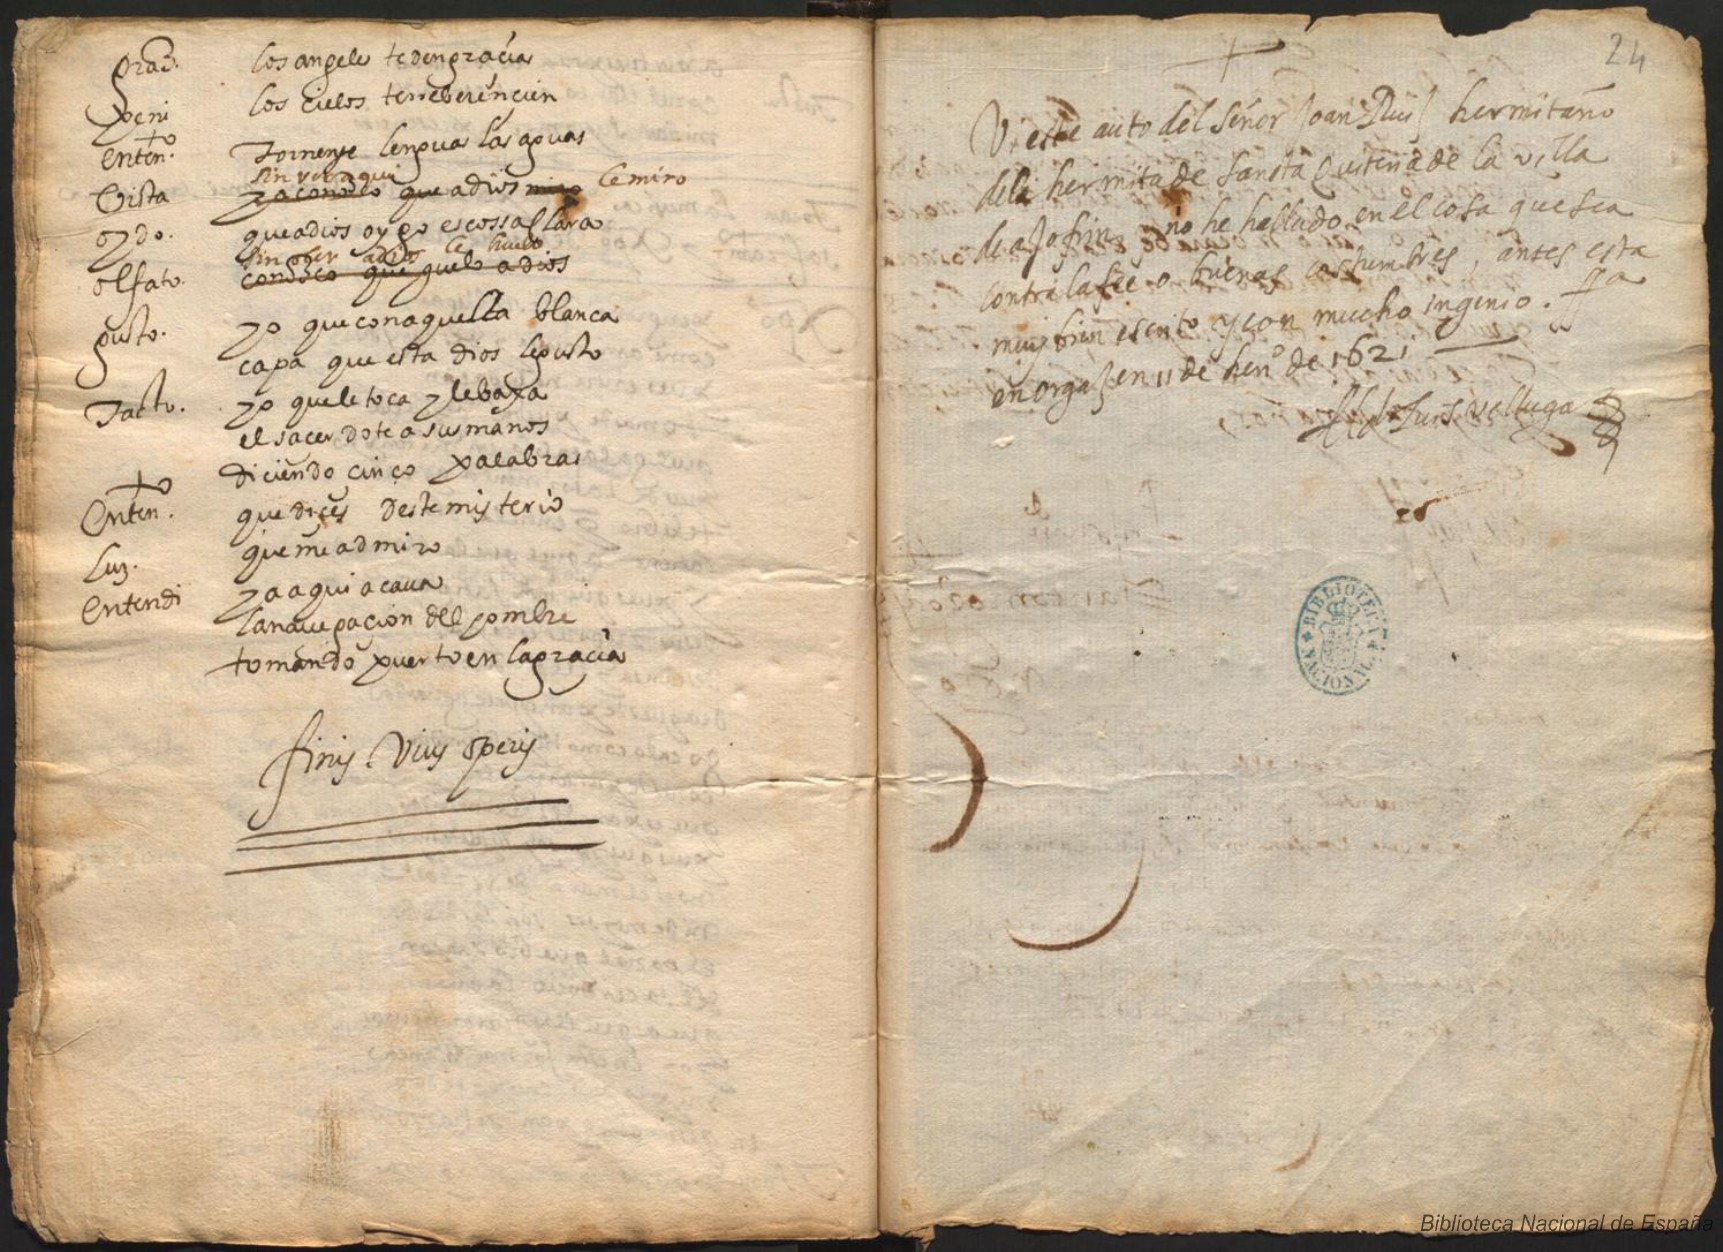 graċ. los angeles te den gracia
Peni los cielos te rreberençien
enten.to Tornense lenguas las aguas
sin ver aqui
Vista ya conozco que a dios miro le miro
oydo. que a dios oygo es cossa clara
sin oler a dios le huelo
olfato. conozco que guelo a dios
gusto. yo que con aquella blanca
capa que esta dios le gusto
Tacto. yo que le toca y le baxa
el sacerdote a sus manos
diciendo cinco palabras
Enten.to que dices deste misterio
Luz. que me admiro
Entendi ya aqui acaua
la nauegacion del hombre
tomando puerto en la gracia
finis. Uius operis
24
Vi este auto del señor Joan Ruiz hermitaño
dela hermita de Sancta Quiteria de la villa
de ajofrin y no he hallado en el cosa que sea
contra la fee o buenas costumbres, antes esta
muy bien escrito y con mucho ingenio. fa
en orgaz en 11 de hen.o de 1621
BIBLIOTECA NACIONAL
Biblioteca Nacional de España